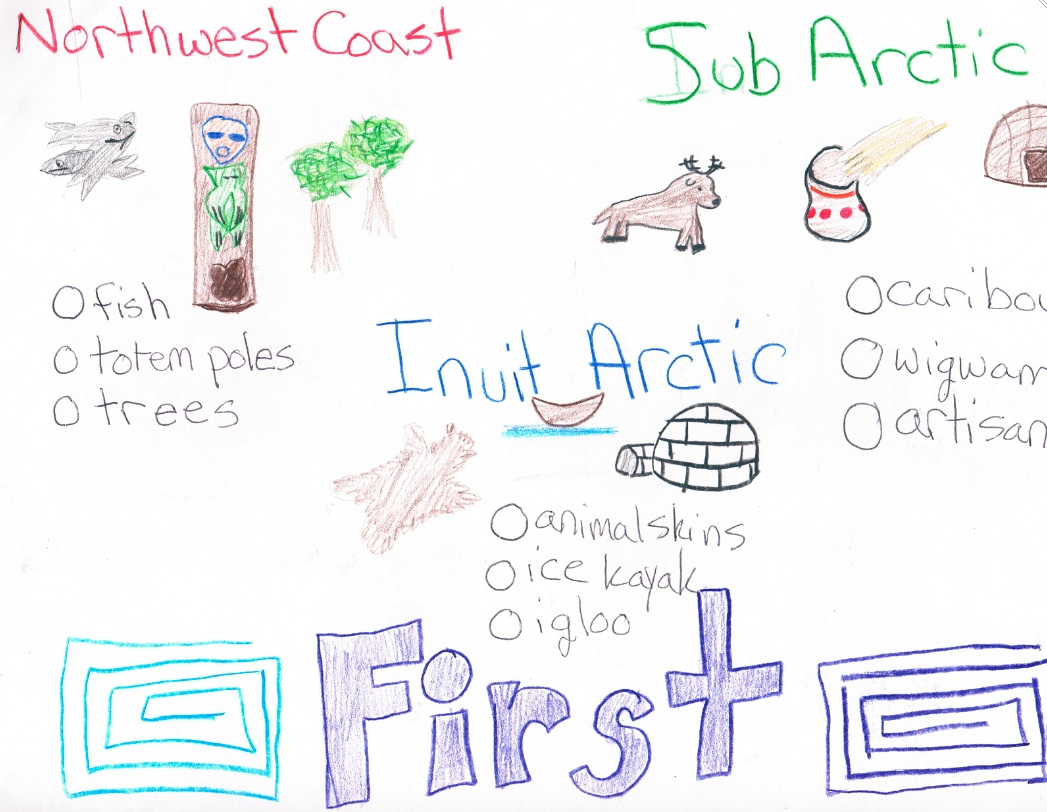 Northwest Coast
Sub Arctic
O fish
O totem poles
O trees
Inuit Arctic
O caribou
O wigwam
O artisan
O animal skins
O ice kayak
O igloo
First